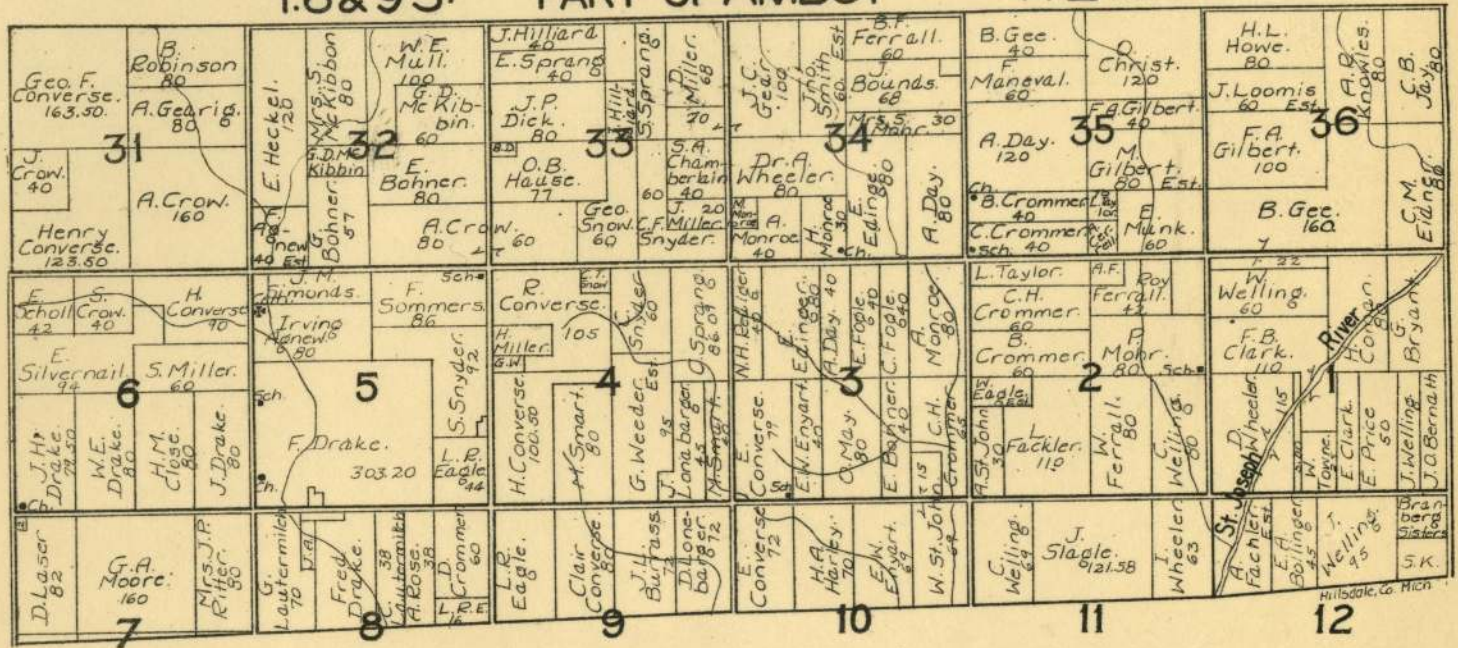 T.8&9S. PART OF AMBOY
Geo. F.
Converse.
163.50.
B.
Robinson
80
A. Gearig.
80
31
J.
Crow.
40
A. Crow.
160
Henry
Converse.
123.50
E. Heckel.
120
Mrs. S.
McKibbon
80
W. E.
Mull.
100
G. D.
McKib-
bin.
60
32
G.D.Mc
Kibbin
E.
Bohner.
80
G.
Bohner.
57
Ag-
new
Est
40
A. Crow.
80
60
J. Hilliard
40
E. Sprang
40
J. P.
Dick.
80
Hill-
iard.
S. Sprang.
D.
Miller.
68
70
33
B.D
O.B.
Hause.
77
S. A.
Cham-
berlain
40
60
Geo.
Snow.
60
J. 20
Miller.
C. F.
Snyder.
J. C.
Gear.
100
Jno.
Smith Est
60
B. F.
Ferrall.
60
J.
Bounds.
68
Mrs. S. 30
Mohr.
34
Dr. A.
Wheeler.
80
M.
Mon-
roe
A.
Monroe
40
H.
Monroe
30
Ch.
E.
Edinge.
80
A. Day.
80
B. Gee.
40
F.
Maneval.
60
O.
Christ.
120
F.A. Gilbert.
40
35
A. Day.
120
M.
Gilbert
80 Est.
Ch.
B. Crommer
40
C. Crommer
Sch. 40
E.
Munk.
60
H. L.
Howe.
80
J. Loomis
60 Est.
A. D.
Knowles.
80
C. B.
Jay.
80
36
F. A.
Gilbert.
100
B. Gee.
160
C. M.
Eidner.
80
E.
Scholl
42
S.
Crow.
40
H.
Converse
90
E.
Silvernail.
94
S. Miller.
60
6
J. H.
Drake.
79.50
W. E.
Drake.
80
H. M.
Close.
80
J. Drake.
80
Ch.
J. M.
Simonds.
Irving
Agnew
80
Sch.
F.
Sommers.
86
5
Sch
S. Snyder.
92
F. Drake.
303.20
Ch.
L. R.
Eagle
44
R.
Converse.
105
C.T.
Snow
Snyder
60
H.
Miller.
G.W
4
J. Sprang
86.07
H. Converse.
100.50
M. Smart.
80
G. Weeder
Est
95
J.
Lonabarger
45
M. Smart.
40
N.H. Reulder
40
E.
Edinger.
80
A. Day. 40
E. Fogle.
40
C. Fogle.
40
A.
Monroe.
80
3
E.
Converse.
79
Sch
E.W. Enyart.
40
O. May.
80
E. Bohner.
40
C. H.
Crommer
65
15
L. Taylor.
C. H.
Crommer
60
A.F.
Roy
Ferrall.
42
B.
Crommer.
60
P.
Mohr.
80
Sch.
2
W.
Eagle
A. St. John
30
L.
Fackler.
110
W.
Ferrall.
80
C.
Welling.
80
22
W.
Welling.
60
F. B.
Clark.
110
H.
Cowan.
80
G.
Bryan.
River
1
D.
Wheeler.
115
W.
Towne.
E. Clark.
E. Price
50
J. Welling
J. O. Bernath
D. Laser
82
G. A.
Moore.
160
Mrs. J. P.
Ritter.
80
7
G.
Lautermilch
70
J.A.
Fred
Drake.
C. 38
Lautermilch
A. Rose.
38
D.
Crommer
60
L. R. E
8
L. R.
Eagle.
Clair
Converse.
80
J. L.
Burrass
72
D. Lone-
barger.
72
9
E.
Converse
72
H. A.
Harley.
70
E. W.
Enyart.
69
W. St. John
69
10
C.
Welling.
J.
Slagle.
121.58
I.
Wheeler
63
11
St Joseph
A.
Fachler
Est.
E. A.
Bolinger
45
J.
Welling
95
Bran-
berg
Sisters
S. K.
Hillsdale, Co. Mich
12